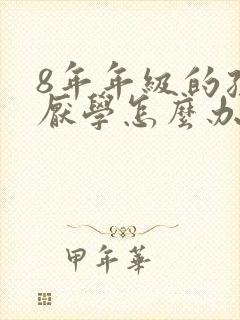 8年年級的
厭學怎麼办
甲年華